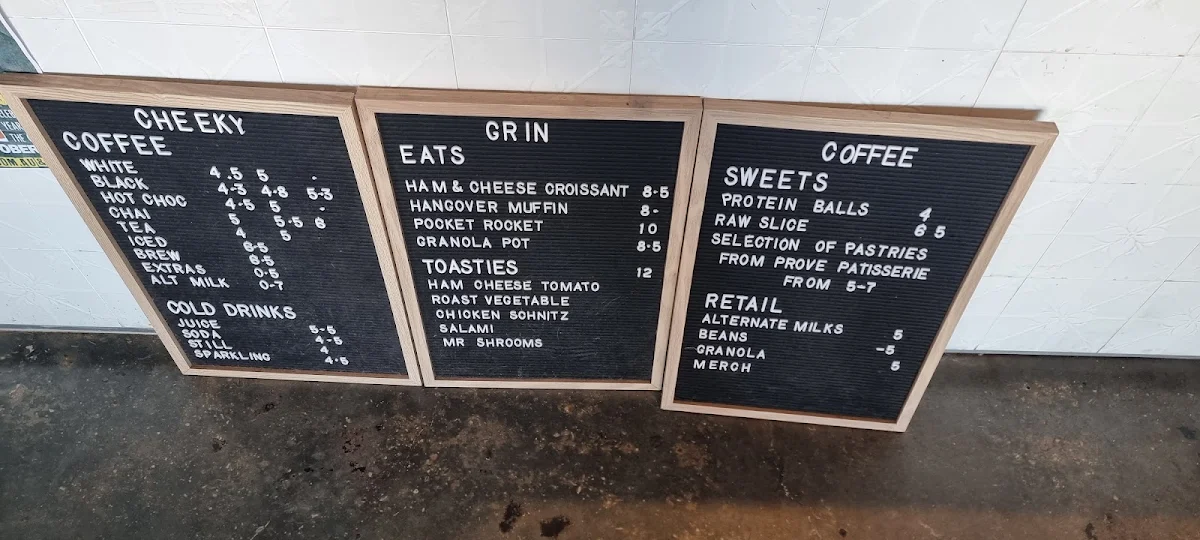 CHEEKY
COFFEE
WHITE 4.5 5 -
BLACK 4.3 4.8 5.3
HOT CHOC 4.5 5 -
CHAI 5 5.5 6
TEA 4 5
ICED 6.5
BREW 6.5
EXTRAS 0.5
ALT MILK 0.7
COLD DRINKS
JUICE 5.5
SODA 4.5
STILL 4
SPARKLING 4.5
GRIN
EATS
HAM & CHEESE CROISSANT 8.5
HANGOVER MUFFIN 8-
POCKET ROCKET 10
GRANOLA POT 8.5
TOASTIES 12
HAM CHEESE TOMATO
ROAST VEGETABLE
CHICKEN SCHNITZ
SALAMI
MR SHROOMS
COFFEE
SWEETS
PROTEIN BALLS 4
RAW SLICE 6 5
SELECTION OF PASTRIES
FROM PROVE PATISSERIE
FROM 5-7
RETAIL
ALTERNATE MILKS 5
BEANS -5
GRANOLA 5
MERCH
YEAR
THE